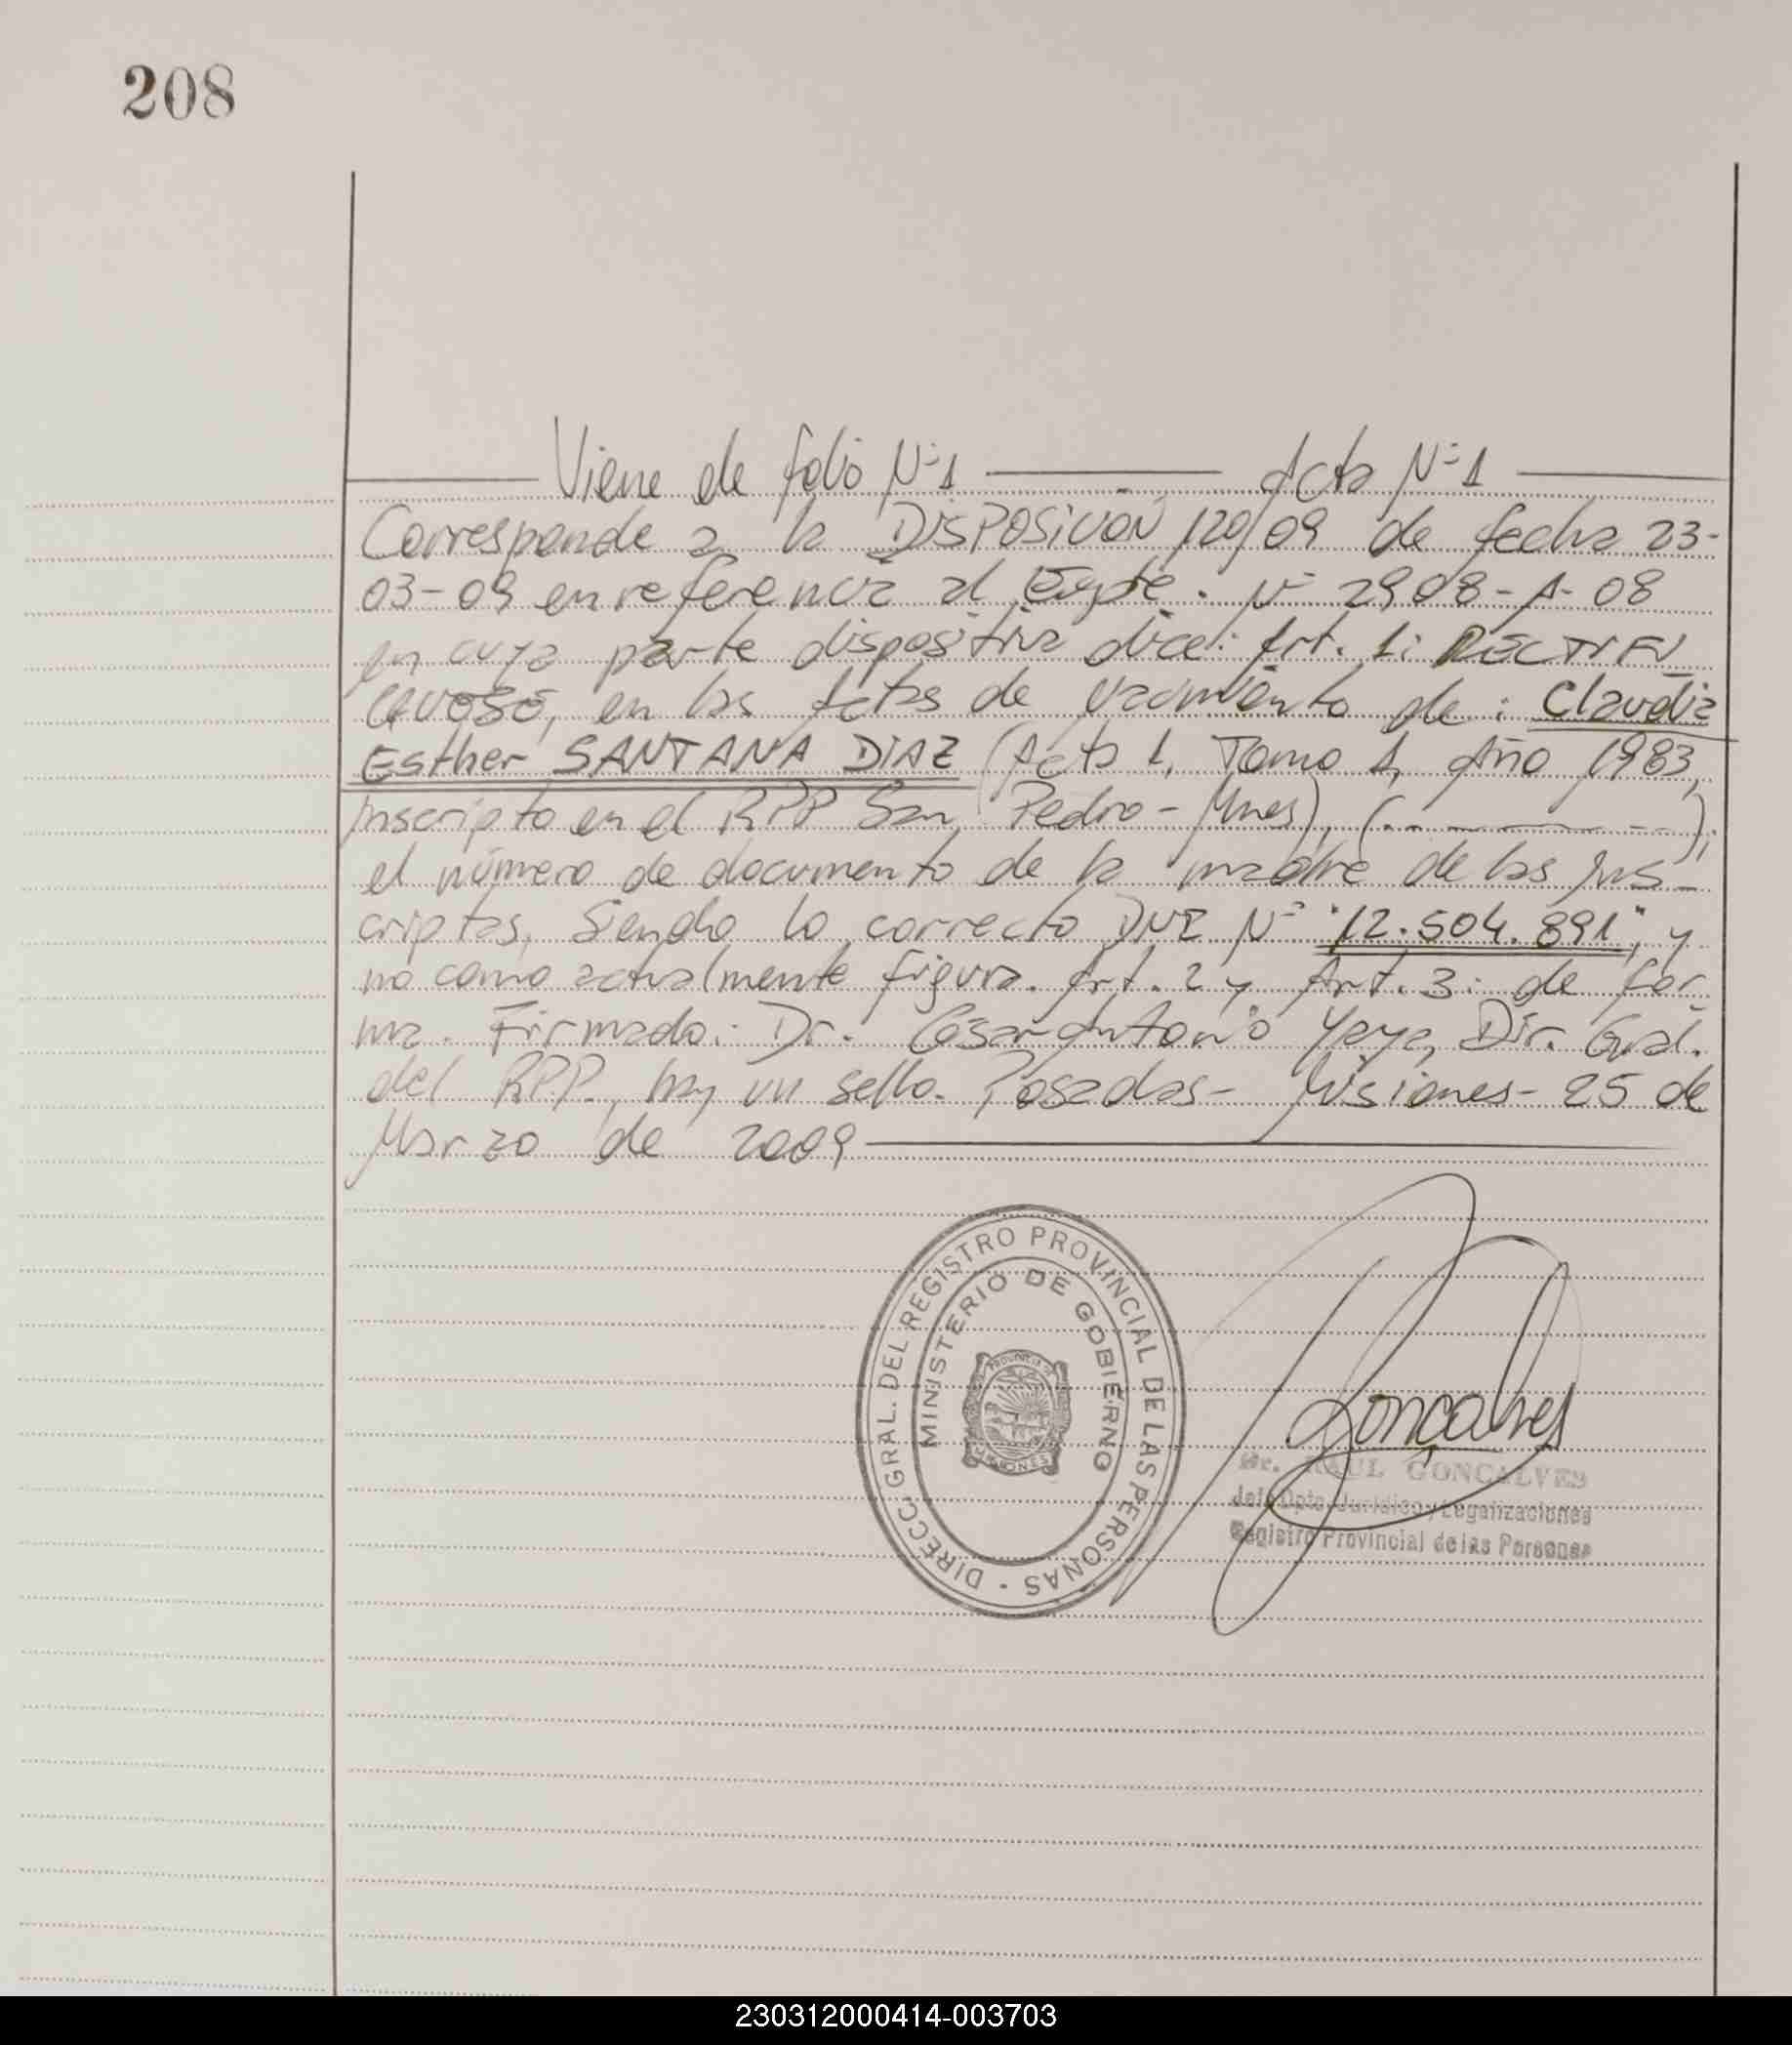 208
Viene de folio Nº 1 Acta Nº 1
Corresponde a la DISPOSICIÓN 120/09 de fecha 23-
03-09 en referencia al Expte. Nº 2908-A-08
en cuya parte dispositiva dice: Art. 1: RECTIFI
en las Actas de Nacimiento de: Claudia
Esther SANTANA DIAZ (Acta 1, Tomo 1, Año 1983,
Inscripto en el RPP San Pedro - Mnes), (------),
el número de documento de la madre de las Ins-
criptas, Siendo lo correcto DNI Nº "12.504.891", y
no como actualmente figura. Art. 2 y Art. 3: de for
ma. Firmado: Dr. César Antonio Yaya, Dir. Gral.
del RPP., hay un sello. Posadas - Misiones - 25 de
Marzo de 2009
DIRECC. GRAL. DEL REGISTRO PROVINCIAL DE LAS PERSONAS
MINISTERIO DE GOBIERNO
PROVINCIA DE
MISIONES
Gonçalves
Dr. RAUL GONCALVES
Jefe Dpto. Jurídico y Legalizaciones
Registro Provincial de las Personas
230312000414-003703